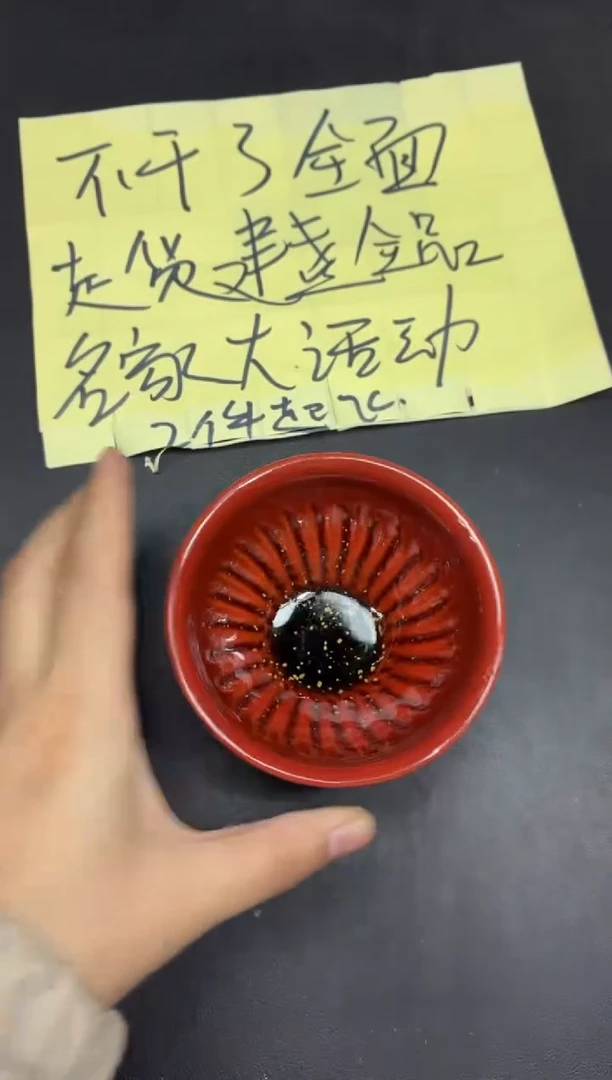 不干了全面
起货建盏全品
名家大活动
2件起飞.